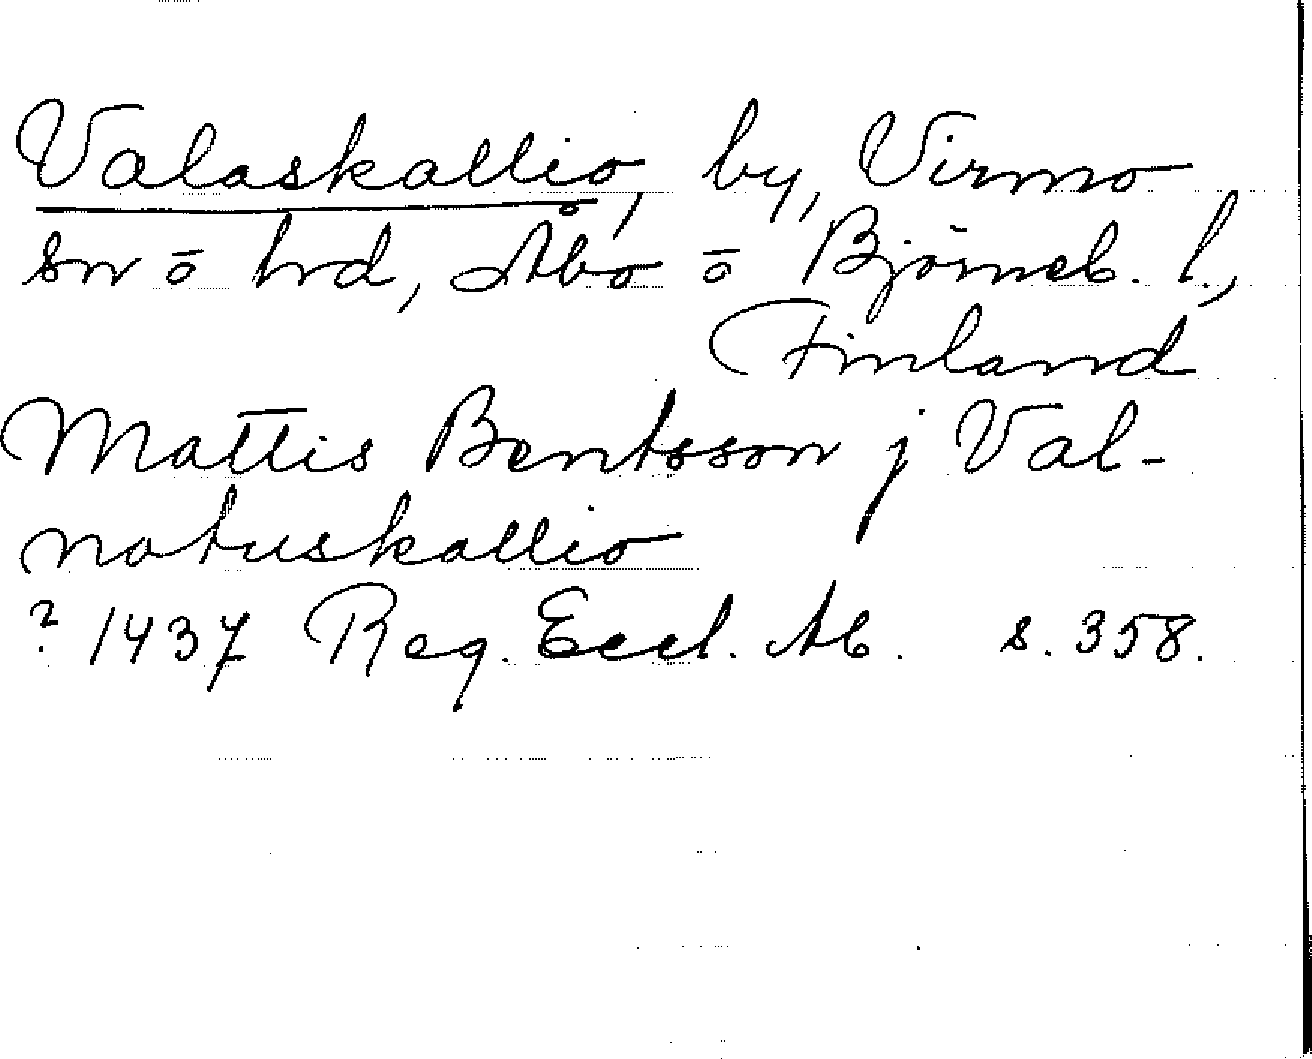 Valaskallio, by, Virmo
sn ō hrd, Åbo ō Björneb. l.,
Finland
Mattis Bentsson j Val-
natuskallio
? 1437 Reg. Eccl. Ab. s. 358.